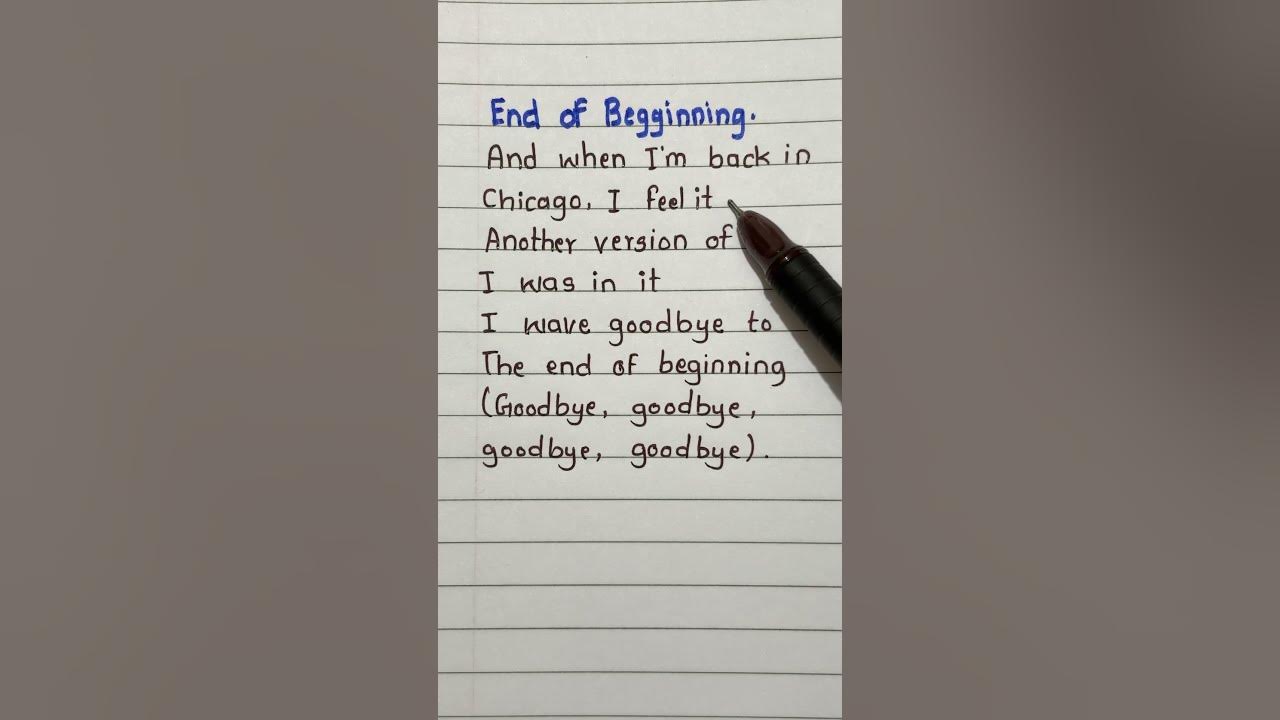 End of Begginning.
And when I'm back in
Chicago, I feel it
Another version of
I was in it
I wave goodbye to
The end of beginning
(Goodbye, goodbye,
goodbye, goodbye).